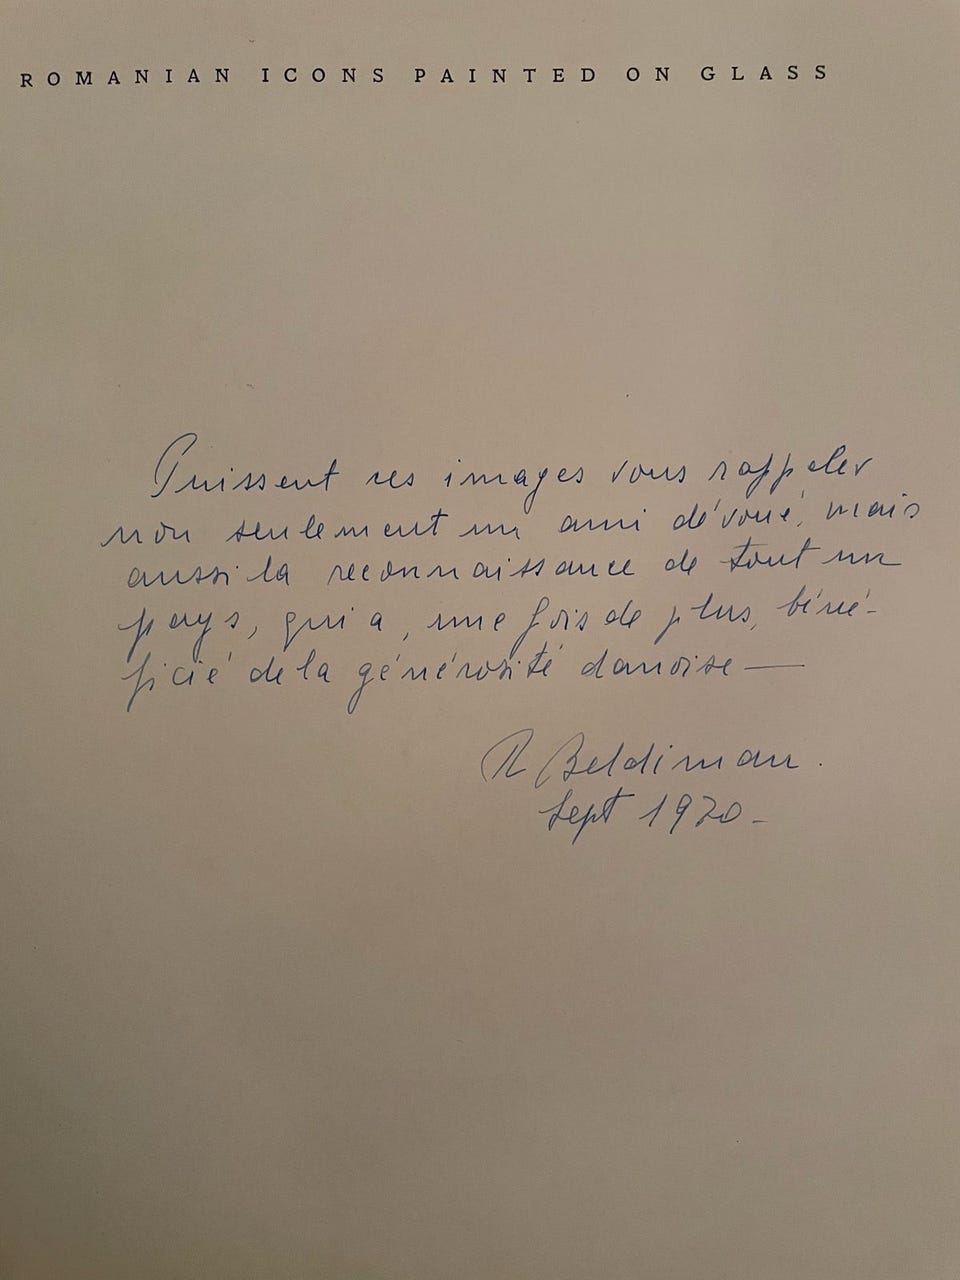 ROMANIAN ICONS PAINTED ON GLASS
Puissent ces images vous rappeler
non seulement un ami dévoué, mais
aussi la reconnaissance de tout un
pays, qui a, une fois de plus, béné-
ficié de la générosité danoise —
R Beldiman.
Sept 1970 -